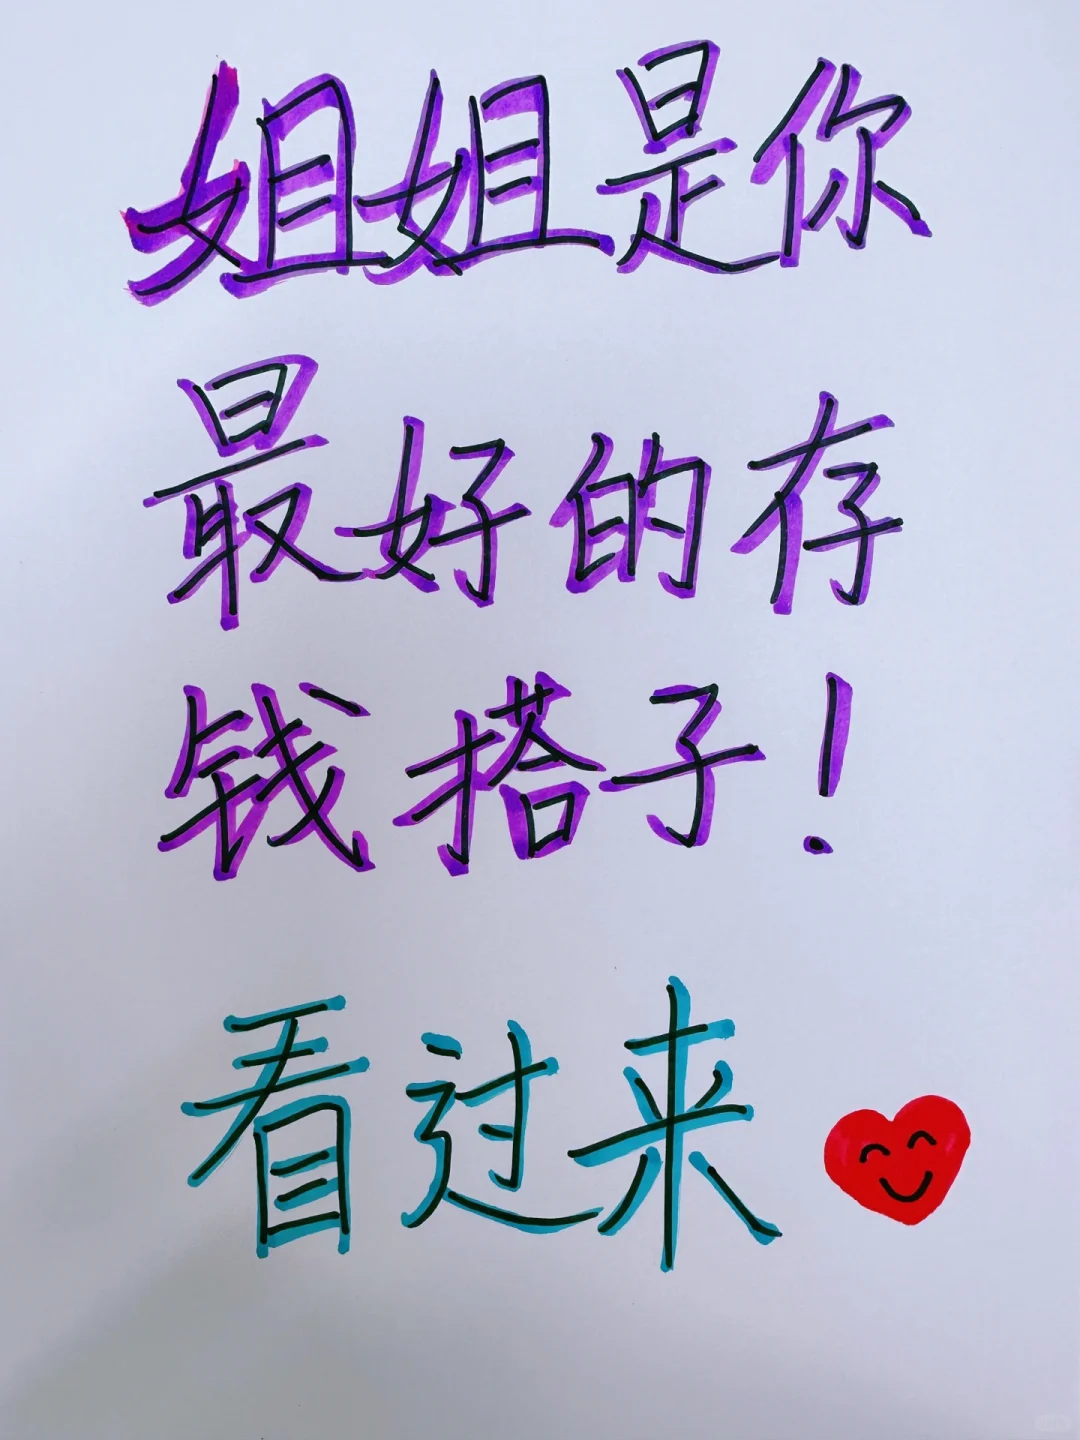 姐姐是你
最好的存
钱搭子！
看过来